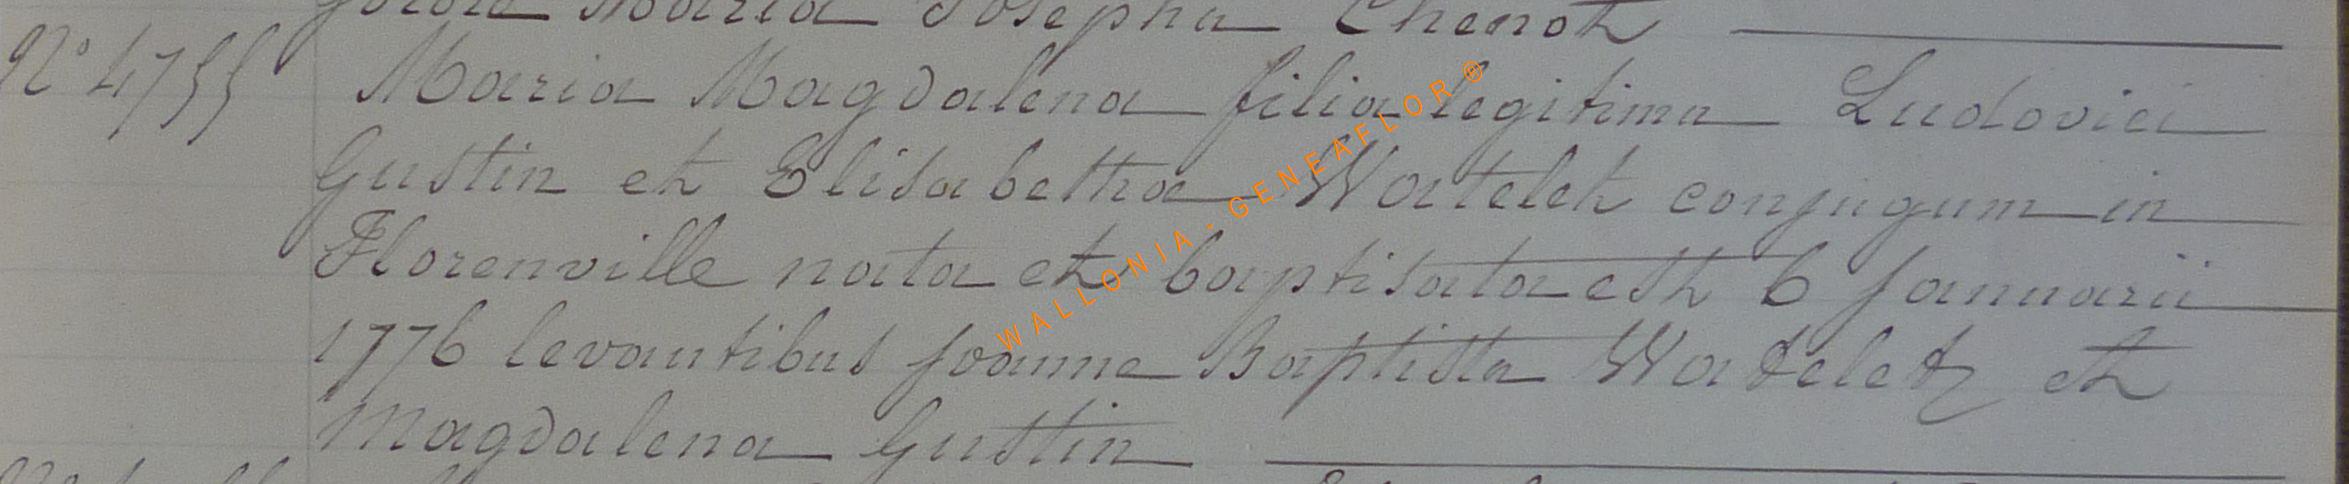 Maria Josepha Chenot
N° 4755 Maria Magdalena filia legitima Ludovici
Gustin et Elisabetha Watelet conjugum in
Florenville nata et baptisata est 6 Januarii
1776 levantibus Joanne Baptista Watelet et
Magdalena Gustin
WALLONIA-GENEAFLOR®